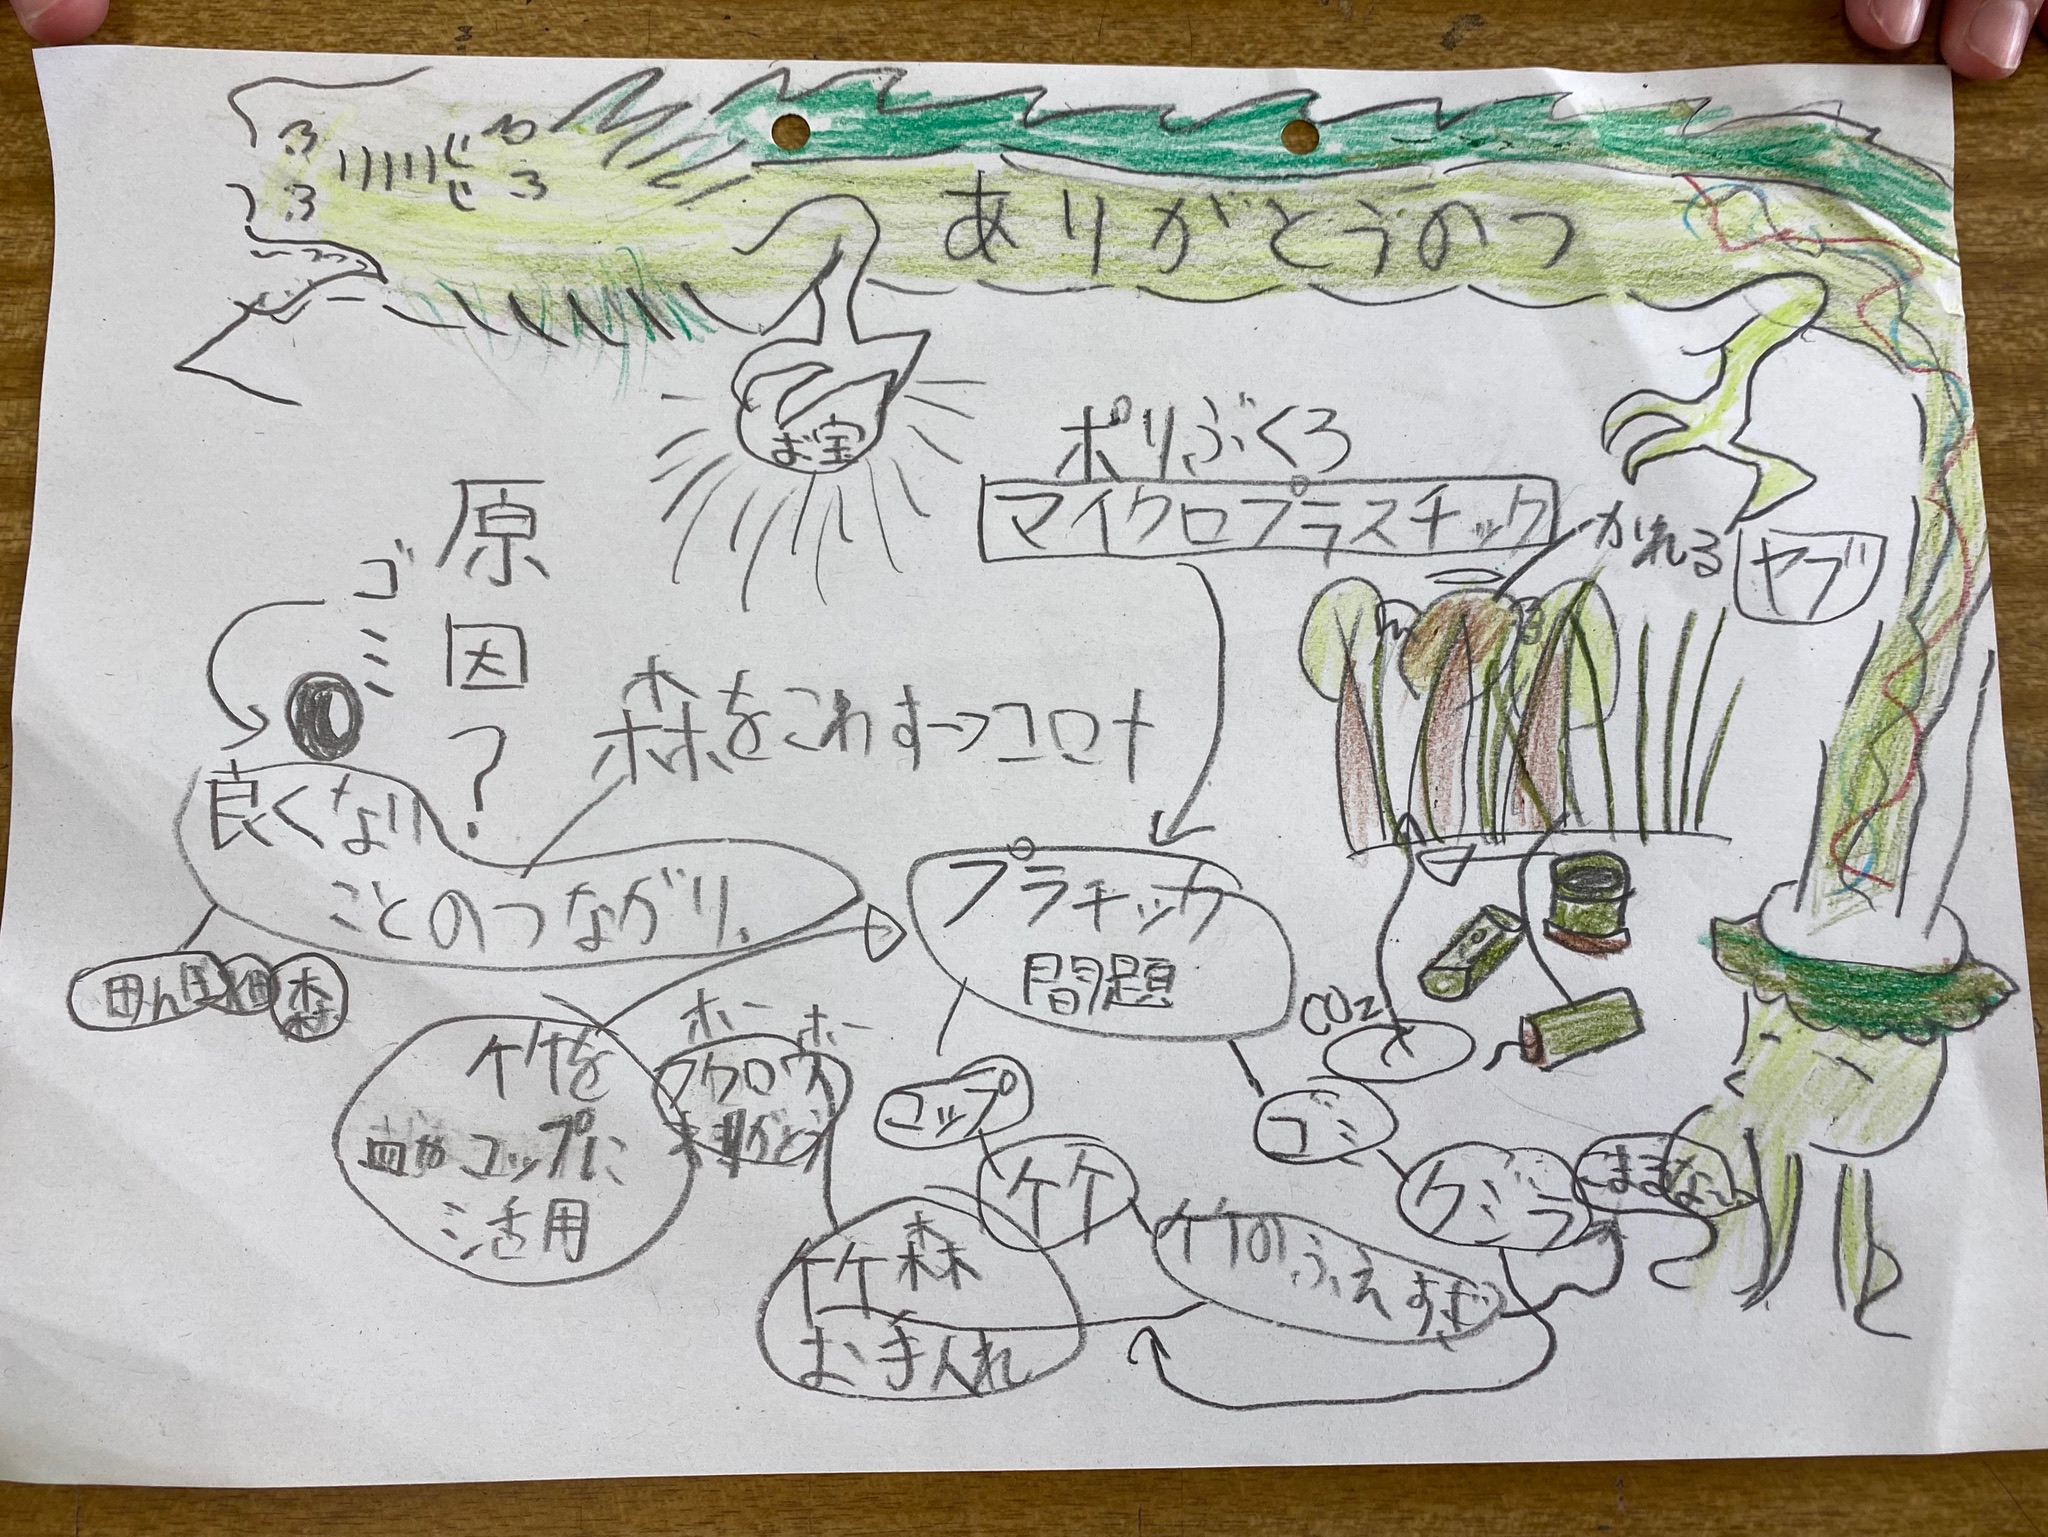 ありがとうのつ
お宝
ポリぶくろ
マイクロプラスチック
かれる
ヤブ
原因?
ゴミ
森をこわす→コロナ
良くない
ことのつながり、
田んぼ
畑
森
プラチック
問題
CO2
竹を
皿やコップに
活用
ホーホー
フクロウ
ありがとう
コップ
竹
ゴミ
クジラ
こままない
竹のふえすぎ
竹森
お手入れ